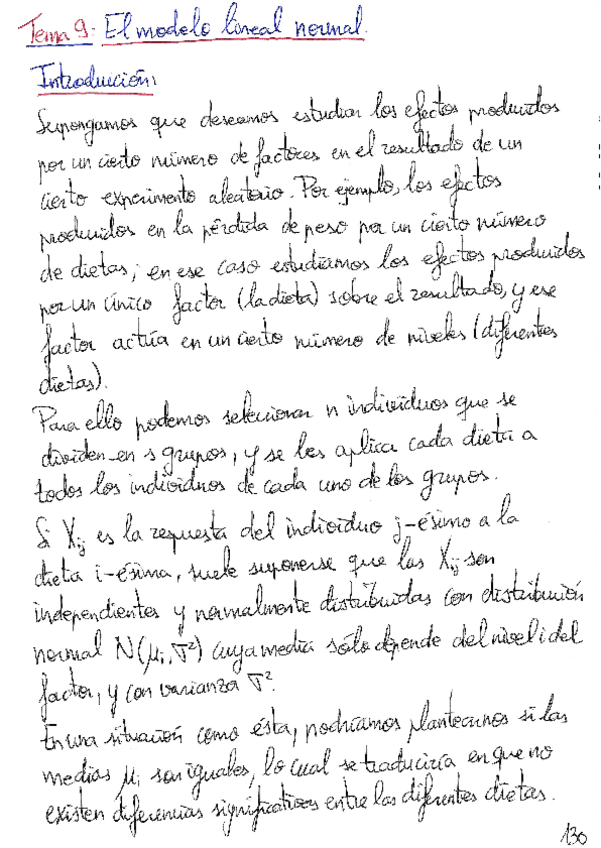 Tema 9: El modelo lineal normal.
Introducción:
Supongamos que deseamos estudiar los efectos producidos
por un cierto número de factores en el resultado de un
cierto experimento aleatorio. Por ejemplo, los efectos
producidos en la pérdida de peso por un cierto número
de dietas; en ese caso estudiamos los efectos producidos
por un único factor (la dieta) sobre el resultado, y ese
factor actúa en un cierto número de niveles (diferentes
dietas).
Para ello podemos seleccionar n individuos que se
dividen en s grupos, y se les aplica cada dieta a
todos los individuos de cada uno de los grupos.
Si Xij es la respuesta del individuo j-ésimo a la
dieta i-ésima, suele suponerse que las Xij son
independientes y normalmente distribuidas con distribución
normal N(μi, σ²) cuya media sólo depende del nivel i del
factor, y con varianza σ².
En una situación como ésta, podríamos plantearnos si las
medias μi son iguales, lo cual se traduciría en que no
existen diferencias significativas entre las diferentes dietas.
130